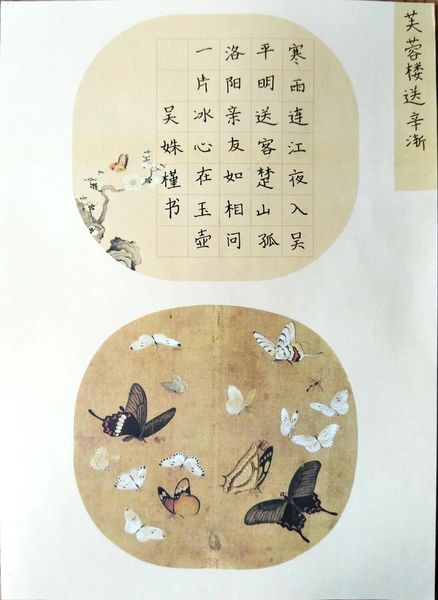 芙蓉楼送辛渐
寒雨连江夜入吴
平明送客楚山孤
洛阳亲友如相问
一片冰心在玉壶
吴姝槿书